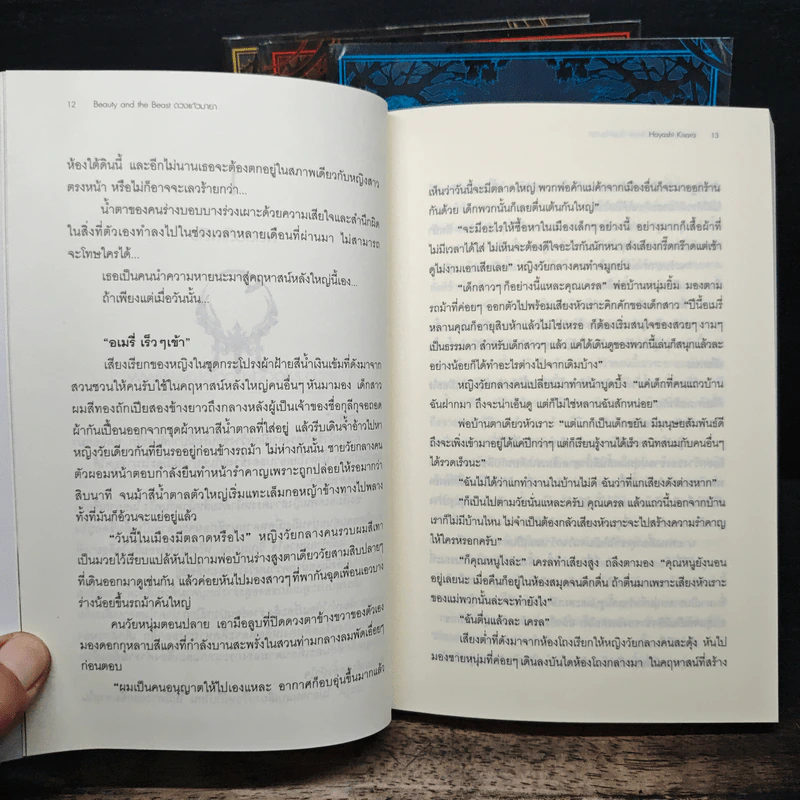 12 Beauty and the Beast ดวงแก้วมายา
ห้องใต้ดินนี้ และอีกไม่นานเธอจะต้องตกอยู่ในสภาพเดียวกับหญิงสาว
ตรงหน้า หรือไม่ก็อาจจะเลวร้ายกว่า...
น้ำตาของคนร่างบอบบางร่วงเผาะด้วยความเสียใจและสำนึกผิด
ในสิ่งที่ตัวเองทำลงไปในช่วงเวลาหลายเดือนที่ผ่านมา ไม่สามารถ
จะโทษใครได้...
เธอเป็นคนนำความหายนะมาสู่คฤหาสน์หลังใหญ่นี้เอง...
ถ้าเพียงแต่เมื่อวันนั้น...
“อเมรี่ เร็วๆเข้า”
เสียงเรียกของหญิงในชุดกระโปรงผ้าฝ้ายสีน้ำเงินเข้มที่ดังมาจาก
สวนชวนให้คนรับใช้ในคฤหาสน์หลังใหญ่คนอื่นๆ หันมามอง เด็กสาว
ผมสีทองถักเปียสองข้างยาวถึงกลางหลังผู้เป็นเจ้าของชื่อกุลีกุจอถอด
ผ้ากันเปื้อนออกจากชุดผ้าหนาสีน้ำตาลที่ใส่อยู่ แล้วรีบเดินจ้ำอ้าวไปหา
หญิงวัยเดียวกันที่ยืนรออยู่ก่อนข้างรถม้า ไม่ห่างกันนั้น ชายวัยกลางคน
ตัวผอมหน้าตอบกำลังยืนทำหน้ารำคาญเพราะถูกปล่อยให้รอมากว่า
สิบนาที จนม้าสีน้ำตาลตัวใหญ่เริ่มแทะเล็มกอหญ้าข้างทางไปพลาง
ทั้งที่มันก็อ้วนจะแย่อยู่แล้ว
“วันนี้ในเมืองมีตลาดหรือไง” หญิงวัยกลางคนรวบผมสีเทา
เป็นมวยไว้เรียบแปล้หันไปถามพ่อบ้านร่างสูงตาเดียววัยสามสิบปลายๆ
ที่เดินออกมาดูเช่นกัน แล้วค่อยหันไปมองสาวๆ ที่พากันฉุดเพื่อนเอวบาง
ร่างน้อยขึ้นรถม้าคันใหญ่
คนวัยหนุ่มตอนปลาย เอามือลูบที่ปิดดวงตาข้างขวาของตัวเอง
มองดอกกุหลาบสีแดงที่กำลังบานสะพรั่งในสวนท่ามกลางลมพัดเอื่อยๆ
ก่อนตอบ
“ผมเป็นคนอนุญาตให้ไปเองแหละ อากาศก็อบอุ่นขึ้นมากแล้ว
Hayashi Kisara 13
เห็นว่าวันนี้จะมีตลาดใหญ่ พวกพ่อค้าแม่ค้าจากเมืองอื่นก็จะมาออกร้าน
กันด้วย เด็กพวกนั้นก็เลยตื่นเต้นกันใหญ่”
“จะมีอะไรให้ซื้อหาในเมืองเล็กๆ อย่างนี้ อย่างมากก็เสื้อผ้าที่
ไม่มีเวลาได้ใส่ ไม่เห็นจะต้องดีใจอะไรกันนักหนา ส่งเสียงกรี๊ดกร๊าดแต่เช้า
ดูไม่งามเอาเสียเลย” หญิงวัยกลางคนทำจมูกย่น
“เด็กสาวๆ ก็อย่างนี้แหละคุณเครล” พ่อบ้านหนุ่มยิ้ม มองตาม
รถม้าที่ค่อยๆ ออกตัวไปพร้อมเสียงหัวเราะคิกคักของเด็กสาว “ปีนี้อเมรี่
หลานคุณก็อายุสิบห้าแล้วไม่ใช่เหรอ ก็ต้องเริ่มสนใจของสวยๆ งามๆ
เป็นธรรมดา สำหรับเด็กสาวๆ แล้ว แค่ได้เดินดูของพวกนี้เล่นก็สนุกแล้วละ
อย่างน้อยก็ได้ทำอะไรต่างไปจากเดิมบ้าง”
หญิงวัยกลางคนเปลี่ยนมาทำหน้าบูดบึ้ง “แค่เด็กที่คนแถวบ้าน
ฉันฝากมา ถึงจะน่าเอ็นดู แต่ก็ไม่ใช่หลานฉันสักหน่อย”
พ่อบ้านตาเดียวหัวเราะ “แต่แกก็เป็นเด็กขยัน มีมนุษยสัมพันธ์ดี
ถึงจะเพิ่งเข้ามาอยู่ได้แค่ปีกว่าๆ แต่ก็เรียนรู้งานได้เร็ว สนิทสนมกับคนอื่นๆ
ได้รวดเร็วนะ”
“ฉันไม่ได้ว่าแกทำงานในบ้านไม่ดี ฉันว่าที่แกเสียงดังต่างหาก”
“ก็เป็นไปตามวัยนั่นแหละครับ คุณเครล แล้วแถวนี้นอกจากบ้าน
เราก็ไม่มีบ้านไหน ไม่จำเป็นต้องกลัวเสียงหัวเราะจะไปสร้างความรำคาญ
ให้ใครหรอกครับ”
“ก็คุณหนูไงล่ะ” เครลทำเสียงสูง ถลึงตามอง “คุณหนูยังนอน
อยู่เลยนะ เมื่อคืนก็อยู่ในห้องสมุดจนดึกดื่น ถ้าตื่นมาเพราะเสียงหัวเราะ
ของแม่พวกนั้นล่ะจะทำยังไง”
“ฉันตื่นแล้วละ เครล”
เสียงต่ำที่ดังมาจากห้องโถงเรียกให้หญิงวัยกลางคนสะดุ้ง หันไป
มองชายหนุ่มที่ค่อยๆ เดินลงบันไดห้องโถงกลางมา ในคฤหาสน์ที่สร้าง